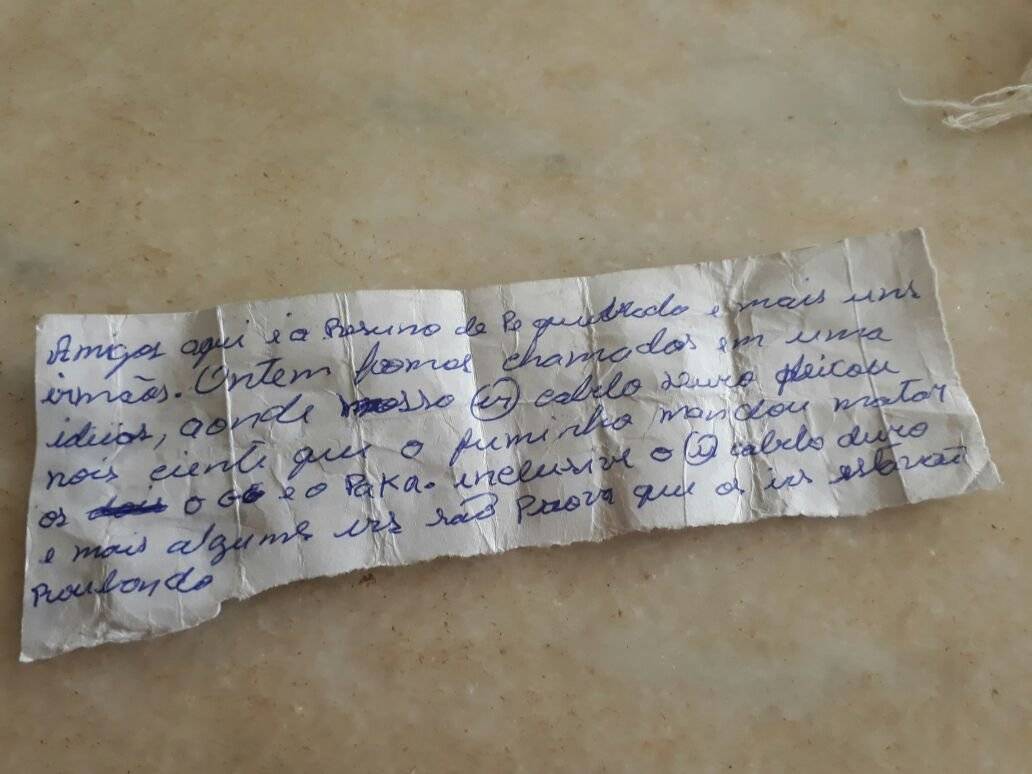 Amigos aqui é a Resumo de Pe quebrada e mais uns
irmãos. Ontem fomos chamados em uma
ideias, aonde nosso ir cabelo duro deicou
nois ciente que o fuminho mandou matar
os o GG e o Paka. inclusive o ir cabelo duro
e mais alguns irs são Prova que os irs estavão
Roubando